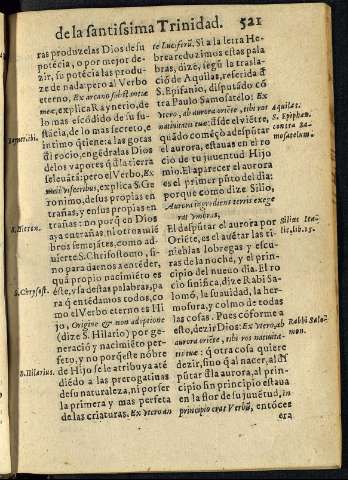 de la santissima Trinidad. 521
ras produzelas Dios de su
potẽcia, o por mejor de-
zir, su potẽcia las produ-
ze de nada: pero al Verbo
eterno, Ex arcano
mea: explica Raynerio, de
lo mas escõdido de su su-
stãcia, de lo mas secreto, e
intimo q̃tiene: a las gotas
dl rocio, engẽdralas Dios
delos vapores q̃dl a tierra
se leuãtã: pero el Verbo, Ex
meis visceribus, explica S. Ge
ronimo, de sus propias en
trañas, y en sus propias en
trañas: no porq̃ en Dios
aya entrañas, ni otros miẽ
bros semejãtes, como ad-
uierte S. Chrisostomo, si-
no para darnos a entẽder,
quã propio nacimiẽto es
éste, y s̃a destas palabras, pa
ra q̃ entẽdamos todos, co
mo el Verbo eterno es Hi
jo, Origine & non adoptione
(dize S. Hilario) por ge-
neració y nacimiẽto per-
feto, y no porq̃ este nõbre
de Hijo se le atribuya atẽ
diẽdo a las prerogatiuas
de su naturaleza, ni por ser
la primera y mas perfeta
de las criaturas. Ex vtero an
te Luciferũ. Si a la letra He
brea reduzimos estas pala
bras, dize, segũ la trasla-
ció de Aquilas, referida d̃
S. Epifanio, disputãdo cõ
tra Paulo Samosatẽlo: Ex
vtero, ab aurora oriẽte, tibi ros
natiuitatis tuæ: d̃sde el viẽtre,
quãdo començò a despũtar
el aurora, estauas en el ro
cio de tu juuentud Hijo
mio. El aparecer el aurora
es el primer pũto del dia:
porque como dize Silio,
Aurora ingrediens terris exege
rat vmbras,
El despũtar el aurora por
Oriẽte, es el auẽtar las ti-
nieblas lobregas y escu-
ras de la noche, y el prin-
cipio del nueuo dia. El ro
cio sinifica, dize Rabi Sala
mõ, la suauidad, la her
mosura, y colmo de todas
las cosas. Pues cõforme a
esto, dezir Dios: Ex vtero, ab
aurora oriẽte, tibi ros natiuita-
tis tuæ: q̃ otra cosa quiere
dezir, sino q̃ al nacer, al d̃s
pũtar d̃la aurora, al prin-
cipio sin principio estaua
en la flor de su juuẽtud, in
principio erat Verbũ, entóces
era
S. Hieron.
S. Chrysost.
S. Hilarius.
Aquilas.
S. Epiphan.
contra Sa-
mosatelum.
Silius Ita-
lic. lib. 15.
Rabbi Salo-
mon.